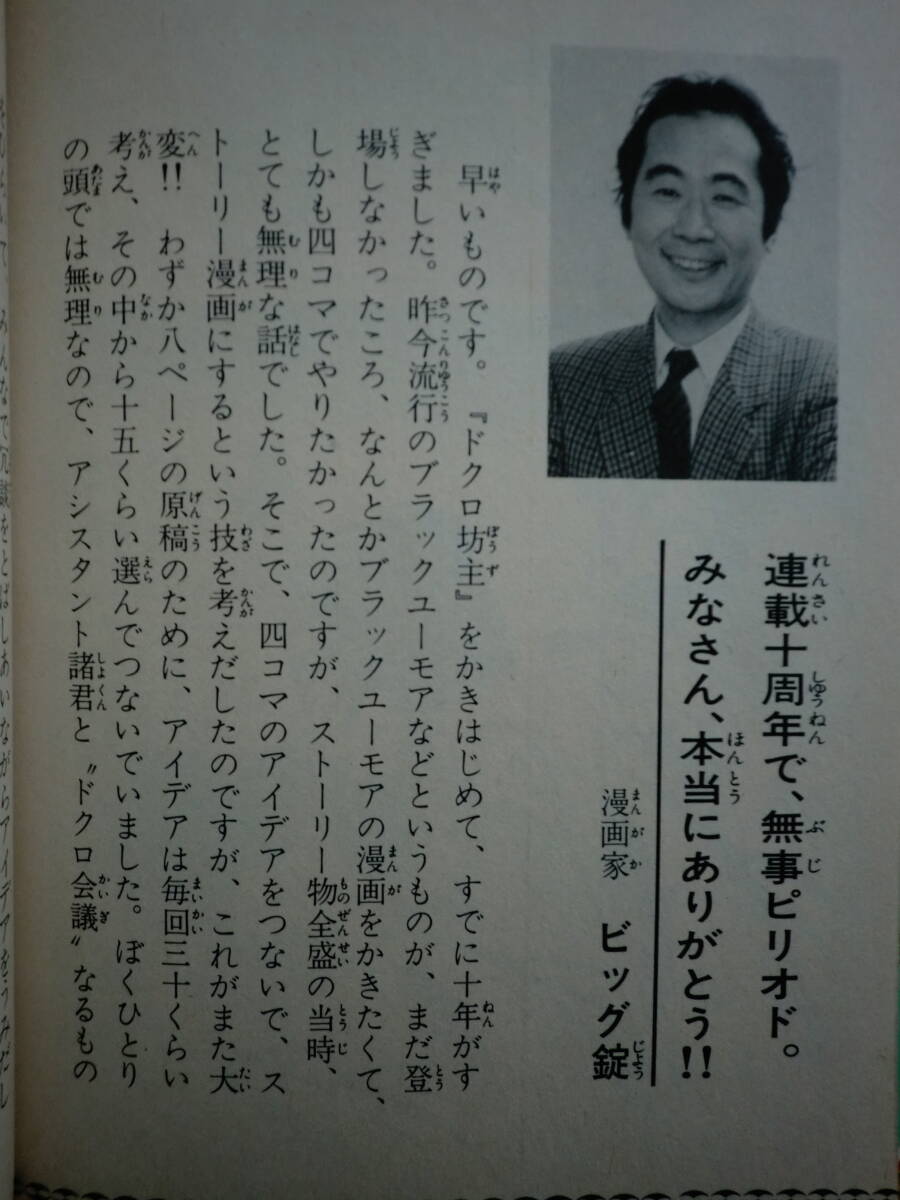 連載十周年で、無事ピリオド。
みなさん、本当にありがとう!!
漫画家　ビッグ錠
早いものです。『ドクロ坊主』をかきはじめて、すでに十年がす
ぎました。昨今流行のブラックユーモアなどというものが、まだ登
場しなかったころ、なんとかブラックユーモアの漫画をかきたくて、
しかも四コマでやりたかったのですが、ストーリー物全盛の当時、
とても無理な話でした。そこで、四コマのアイデアをつないで、ス
トーリー漫画にするという技を考えだしたのですが、これがまた大
変!!　わずか八ページの原稿のために、アイデアは毎回三十くらい
考え、その中から十五くらい選んでつないでいました。ぼくひとり
の頭では無理なので、アシスタント諸君と〝ドクロ会議〟なるもの
みんなで冗談をとばしあいながらアイデアをうみだし